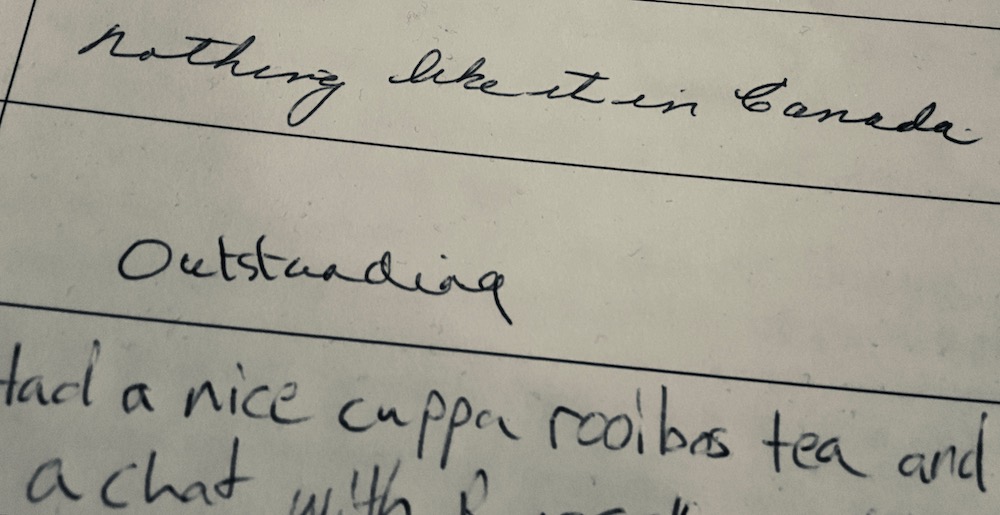 nothing like it in Canada
Outstanding
Had a nice cuppa rooibos tea and
a chat with